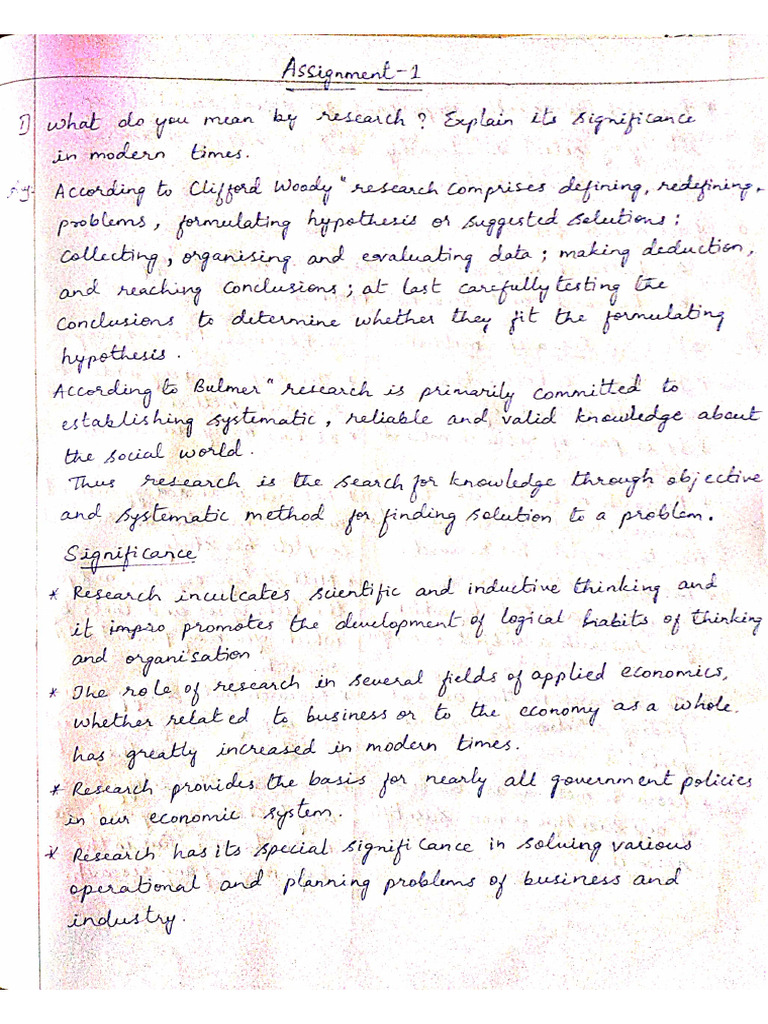 Assignment-1
1) What do you mean by research? Explain its significance
in modern times.
According to Clifford Woody "research comprises defining, redefining,
problems, formulating hypothesis or suggested solutions;
collecting, organising and evaluating data; making deduction,
and reaching conclusions; at last carefully testing the
conclusions to determine whether they fit the formulating
hypothesis.
According to Bulmer "research is primarily committed to
establishing systematic, reliable and valid knowledge about
the social world.
Thus research is the search for knowledge through objective
and systematic method for finding solution to a problem.
Significance
* Research inculcates scientific and inductive thinking and
it impro promotes the development of logical habits of thinking
and organisation
* The role of research in several fields of applied economics,
whether related to business or to the economy as a whole.
has greatly increased in modern times.
* Research provides the basis for nearly all government policies
in our economic system.
* Research has its special significance in solving various
operational and planning problems of business and
industry.